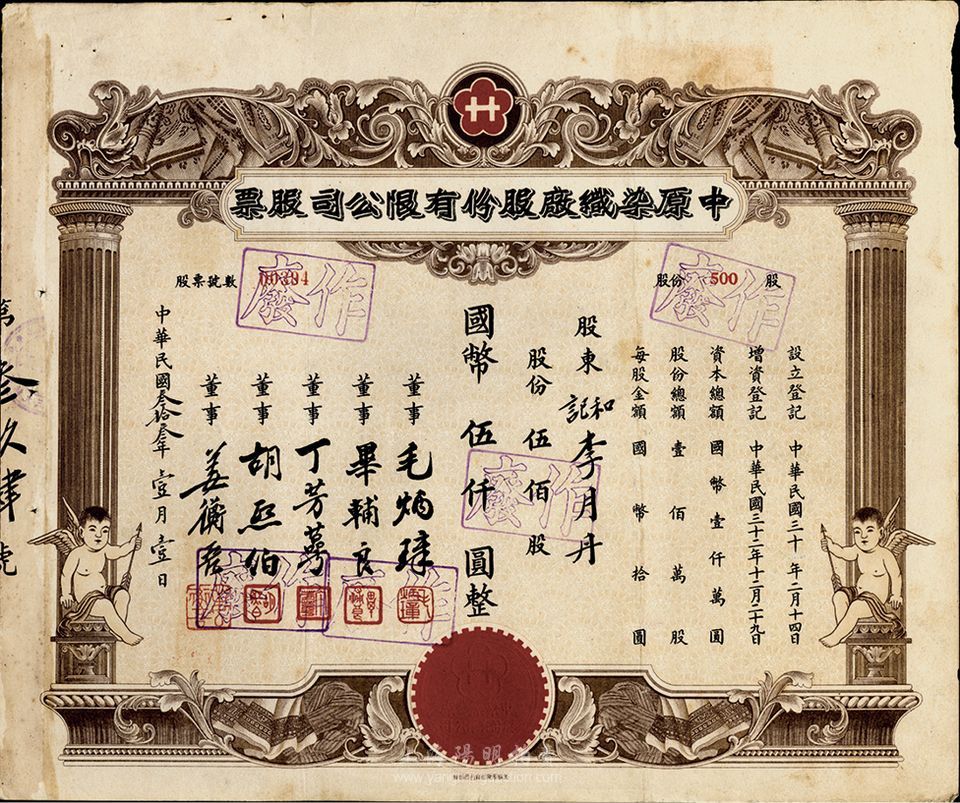 中原染織廠股份有限公司股票
股份 500 股
設立登記 中華民國三十年二月十四日
增資登記 中華民國三十二年十二月二十九日
資本總額 國幣壹仟萬圓
股份總額 壹佰萬股
每股金額 國幣拾圓
股東 和記 李月丹
股份 伍佰股
國幣 伍仟圓整
董事 毛炳璋
董事 畢輔良
董事 丁芳萼
董事 胡熙伯
董事
中華民國叁拾叁年壹月壹日
股票號數
作廢
作廢
作廢
作廢
作廢
第叁久肆號